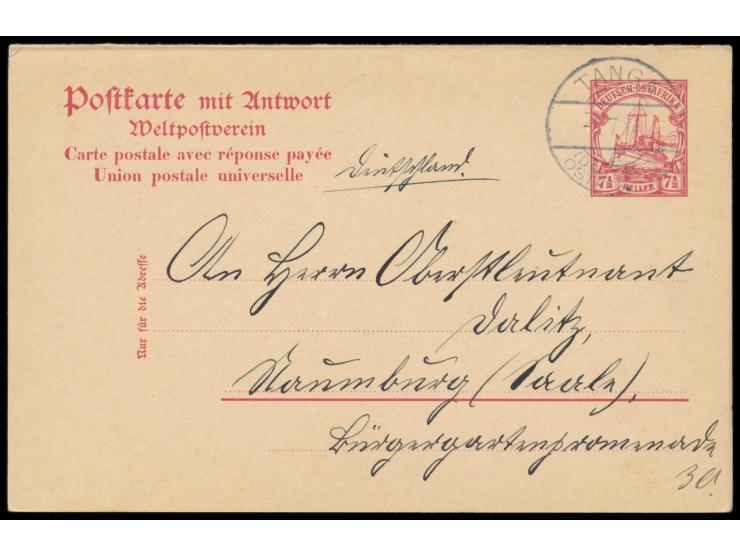 Postkarte mit Antwort
Weltpostverein
Carte postale avec réponse payée
Union postale universelle
TANGA
DEUTSCH-OSTAFRIKA
7½ HELLER 7½
Deutschland.
Nur für die Adresse
An Herrn Oberstleutnant
Dalitz,
Naumburg (Saale),
Bürgergartenpromenade